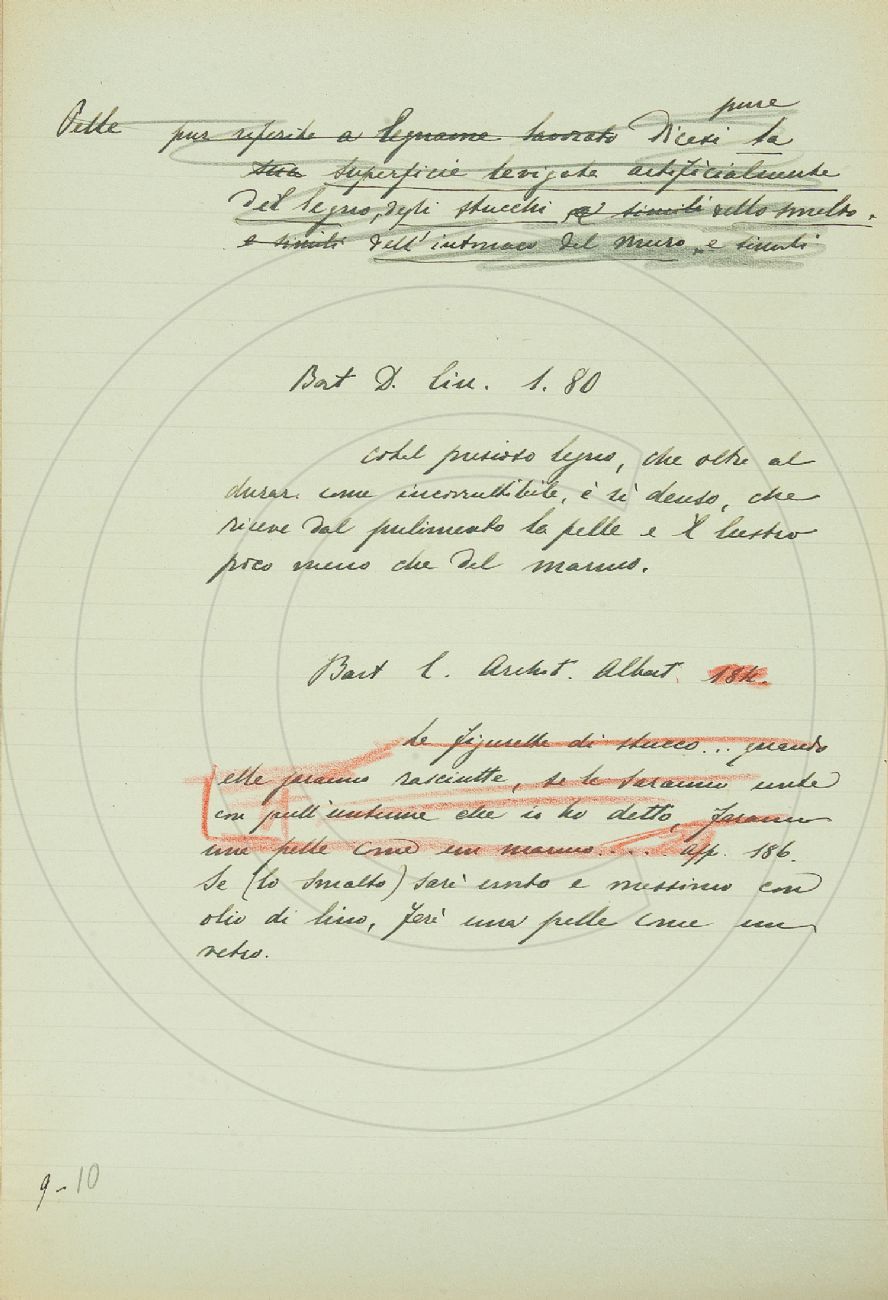 pure
Pelle pur riferito a legname lavorato Dicesi la
sua superficie levigata artificialmente
del legno, degli stucchi, e simili dello smalto.
e simili dell'intonaco del muro, e simili
Bart D. Cin. 1. 80
cotel prezioso legno, che oltre al
durar come incorruttibile, è sì denso, che
riceve dal pulimento la pelle e il lustro
poco meno che del marmo.
Bart C. Archit. Albert. 184.
Le figurette di stucco... quando
elle saranno rasciutte, se le saranno unte
con quell'untume che io ho detto, faranno
una pelle come un marmo..... app. 186.
Se (lo smalto) sarà unto e con
olio di lino, ferà una pelle come un
vetro.
9-10